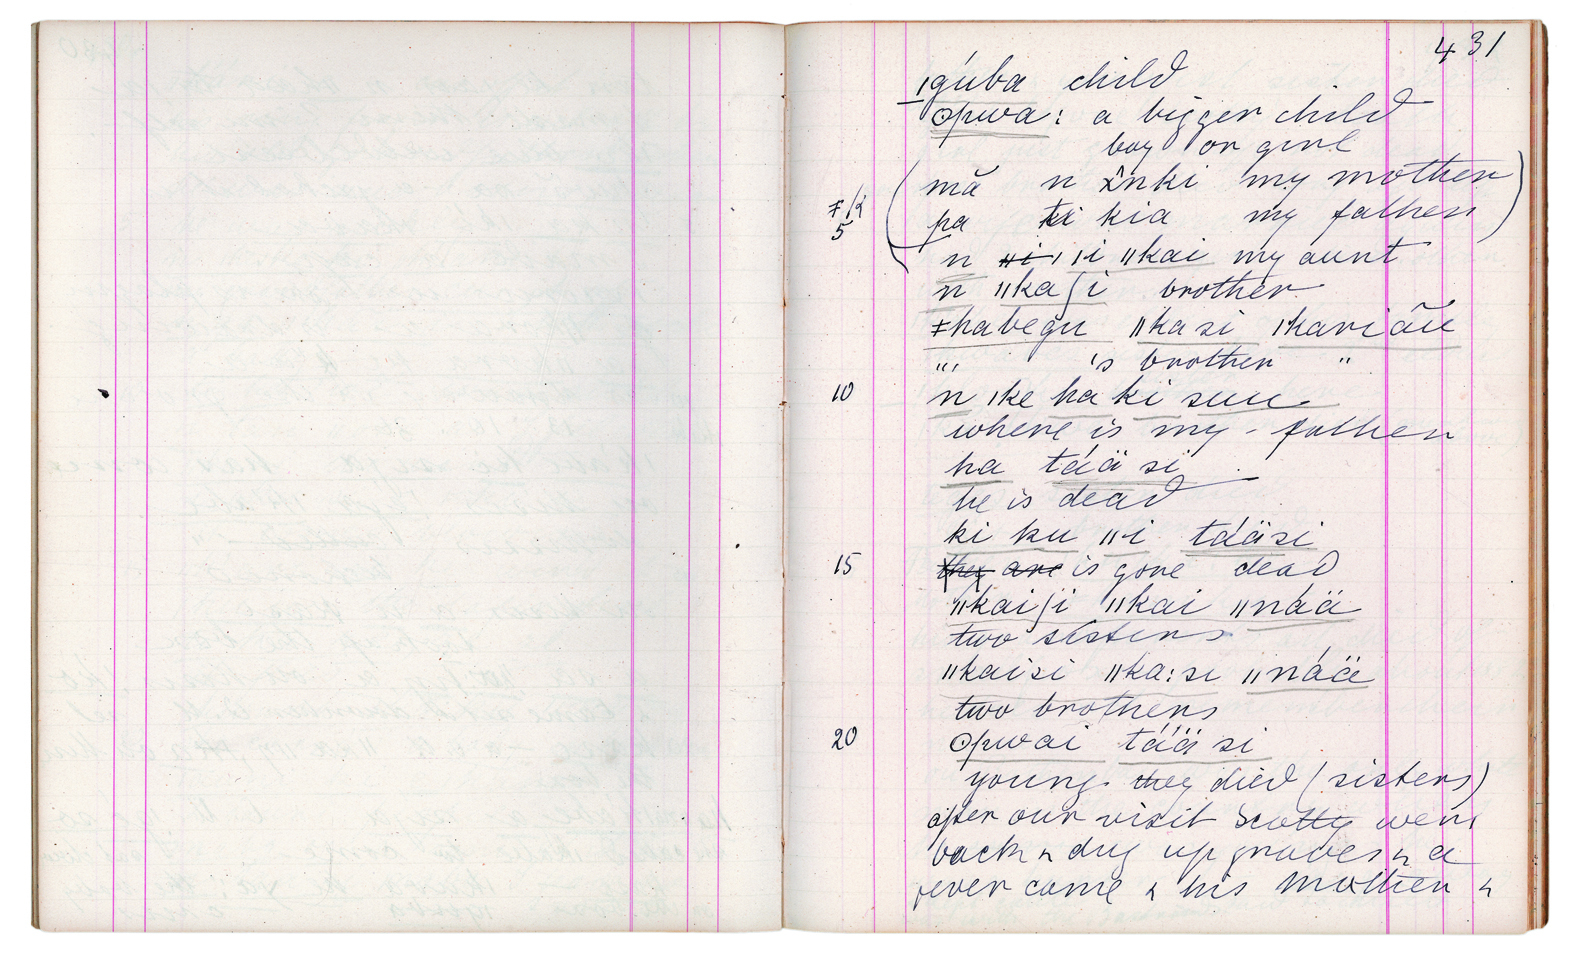 431
ǀgúba child
ʘpwa: a bigger child
boy or girl
(mã n ʌ̂nki my mother)
ǂK (pa ki kia my father)
5
n ǁi ǀǀi ǁkai my aunt
n ǁkaʃi brother
ǂhabegu ǁkasi ǀkariãũ
"" 's brother "
10 n ǀke ha ki suu
where is my father
ha táä si
he is dead
ki ku ǁi táäsi
15 they are is gone dead
ǁkaiʃi ǁkai ǁnáä
two sisters
ǁkaisi ǁka:si ǁnáä
two brothers
20 ʘpwai táä si
young they died (sisters)
after our visit Scotty went
back & dug up graves & a
fever came & his mother &